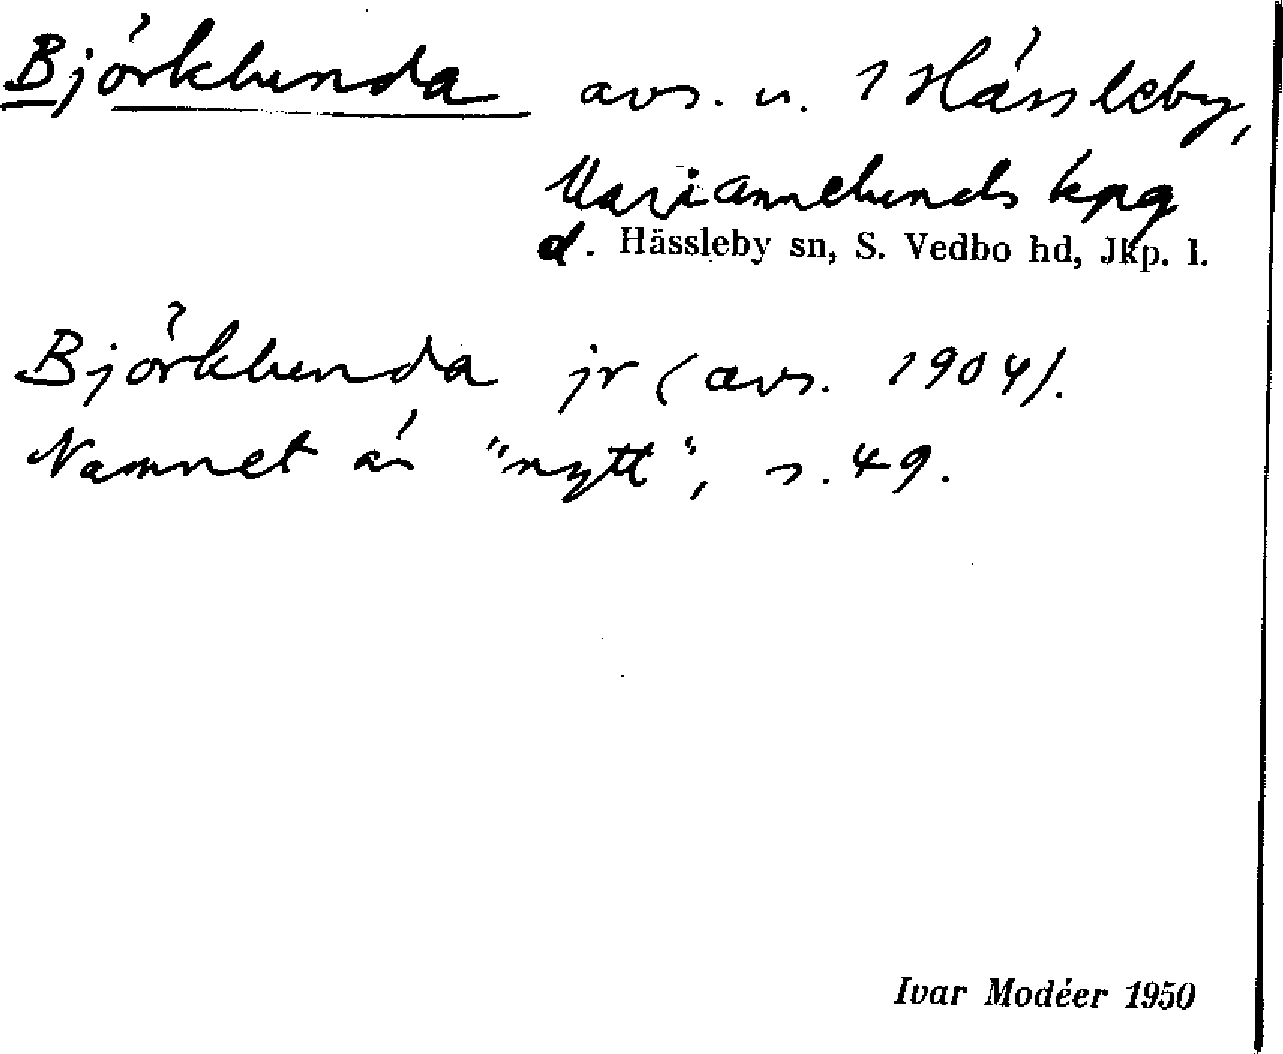 Björklunda avs. u. 1 Hässleby,
Mariannelunds kpg
d. Hässleby sn, S. Vedbo hd, Jkp. l.
Björklunda jr (avs. 1904).
Namnet är "nytt", s. 49.
Ivar Modéer 1950